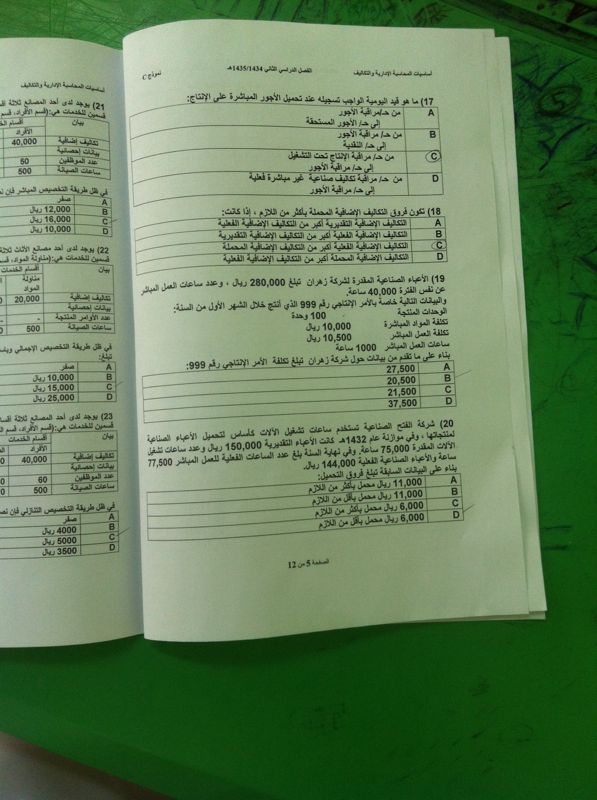 أساسيات المحاسبة الإدارية والتكاليف الفصل الدراسي الثاني 1435/1434هـ نموذج C
17) ما هو قيد اليومية الواجب تسجيله عند تحميل الأجور المباشرة على الإنتاج:
A من حـ/مراقبة الأجور
إلى حـ/ الأجور المستحقة
B من حـ/ مراقبة الأجور
إلى حـ/ النقدية
C من حـ/ مراقبة الإنتاج تحت التشغيل
إلى حـ/ مراقبة الأجور
D من حـ/ مراقبة تكاليف صناعية غير مباشرة فعلية
إلى حـ/ مراقبة الأجور
18) تكون فروق التكاليف الإضافية المحملة بأكثر من اللازم ، إذا كانت:
A التكاليف الإضافية التقديرية أكبر من التكاليف الإضافية الفعلية
B التكاليف الإضافية الفعلية أكبر من التكاليف الإضافية التقديرية
C التكاليف الإضافية الفعلية أكبر من التكاليف الإضافية المحملة
D التكاليف الإضافية المحملة أكبر من التكاليف الإضافية الفعلية
19) الأعباء الصناعية المقدرة لشركة زهران تبلغ 280,000 ريال ، وعدد ساعات العمل المباشر
عن نفس الفترة 40,000 ساعة.
والبيانات التالية خاصة بالأمر الإنتاجي رقم 999 الذي أنتج خلال الشهر الأول من السنة:
الوحدات المنتجة 100 وحدة
تكلفة المواد المباشرة 10,000 ريال
تكلفة العمل المباشر 10,500 ريال
ساعات العمل المباشر 1000 ساعة
بناء على ما تقدم من بيانات حول شركة زهران تبلغ تكلفة الأمر الإنتاجي رقم 999:
A 27,500
B 20,500
C 21,500
D 37,500
20) شركة الفتح الصناعية تستخدم ساعات تشغيل الآلات كأساس لتحميل الأعباء الصناعية
لمنتجاتها ، وفي موازنة عام 1432هـ كانت الأعباء التقديرية 150,000 ريال وعدد ساعات تشغيل
الآلات المقدرة 75,000 ساعة. وفي نهاية السنة بلغ عدد الساعات الفعلية للعمل المباشر 77,500
ساعة والأعباء الصناعية الفعلية 144,000 ريال.
بناء على البيانات السابقة تبلغ فروق التحميل:
A 11,000 ريال محمل بأكثر من اللازم
B 11,000 ريال محمل بأقل من اللازم
C 6,000 ريال محمل بأكثر من اللازم
D 6,000 ريال محمل بأقل من اللازم
الصفحة 5 من 12
أساسيات المحاسبة الإدارية والتكاليف
21) يوجد لدى أحد المصانع ثلاثة
قسمين للخدمات هي:(قسم الأفراد، قسم
بيان أقسام
الأفراد
تكاليف إضافية 40,000
بيانات إحصائية
عدد الموظفين 50
ساعات الصيانة 500
في ظل طريقة التخصيص المباشر فإن
A صفر
B 12,000 ريال
C 16,000 ريال
D 10,000 ريال
22) يوجد لدى أحد مصانع الأثاث ثلاثة
قسمين للخدمات هي:(مناولة المواد، قسم
بيان أقسام الخدمات
مناولة
المواد
تكاليف إضافية 20,000
بيانات إحصائية
عدد الأوامر المنتجة -
ساعات الصيانة 500
في ظل طريقة التخصيص الإجمالي
تبلغ:
A صفر
B 10,000 ريال
C 15,000 ريال
D 25,000 ريال
23) يوجد لدى أحد المصانع ثلاثة
قسمين للخدمات هي:(قسم الأفراد، قسم
بيان أقسام الخدمات
الأفراد
تكاليف إضافية 40,000
بيانات إحصائية
عدد الموظفين 60
ساعات الصيانة 500
في ظل طريقة التخصيص التنازلي فإن
A صفر
B 4000 ريال
C 5000 ريال
D 3500 ريال